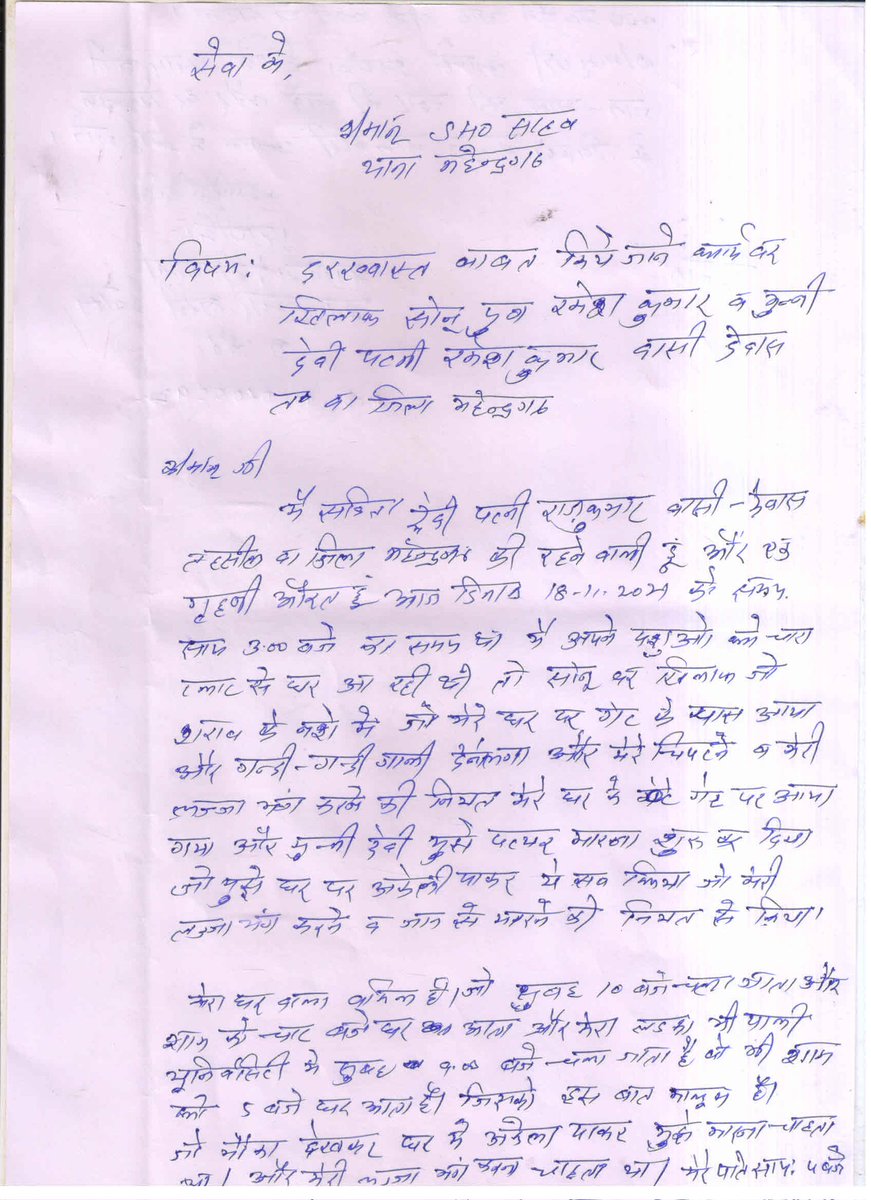 सेवा में,
श्रीमान् SHO साहब
थाना महेन्द्रगढ
विषय: दरख्वास्त बाबत किये जाने कार्यवाई
खिलाफ सोनू पुत्र रमेश कुमार व मुन्नी
देवी पत्नी रमेश कुमार वासी देवास
तह व जिला महेन्द्रगढ
श्रीमान् जी
मैं सविता देवी पत्नी राजकुमार वासी देवास
तहसील व जिला महेन्द्रगढ की रहने वाली हूं और एक
गृहणी औरत हूं आज दिनांक 18-11-2021 को समय
साय 3:00 बजे का समय था मैं अपने पशुओं को चारा
से घर आ रही थी तो सोनू खिलाफ जो
शराब के नशे में जो मेरे घर पर गेट के पास आया
और गन्दी-गन्दी गाली देने लगा और मेरे चिपटने व मेरी
लज्जा भंग करने की नियत मेरे घर के गेट पर आया
गया और मुन्नी देवी मुझे पत्थर मारना शुरू कर दिया
जो मुझे घर पर अकेली पाकर ये सब किया जो मेरी
लज्जा भंग करने व जान से मारने की नियत से किया।
मेरा घर वाला वकिल है। जो सुबह 10 बजे चला जाता और
शाम को चार बजे घर आता और मेरा लडका भी पाली
यूनिर्वसिटी में सुबह 9:00 बजे चला जाता है वो भी शाम
को 5 बजे घर आता है। जिसको इस बात मालूम है।
जो मौका देखकर घर में अकेला पाकर मुझे मारना चाहता
था। और मेरी लज्जा भंग करना चाहता था। मेरे पति सायः 4 बजे